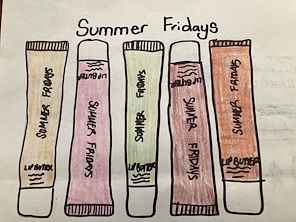 Summer Fridays
SUMMER FRIDAYS
LIP BUTTER
LIP BUTTER
SUMMER FRIDAYS
SUMMER FRIDAYS
LIP BUTTER
LIP BUTTER
SUMMER FRIDAYS
SUMMER FRIDAYS
LIP BUTTER